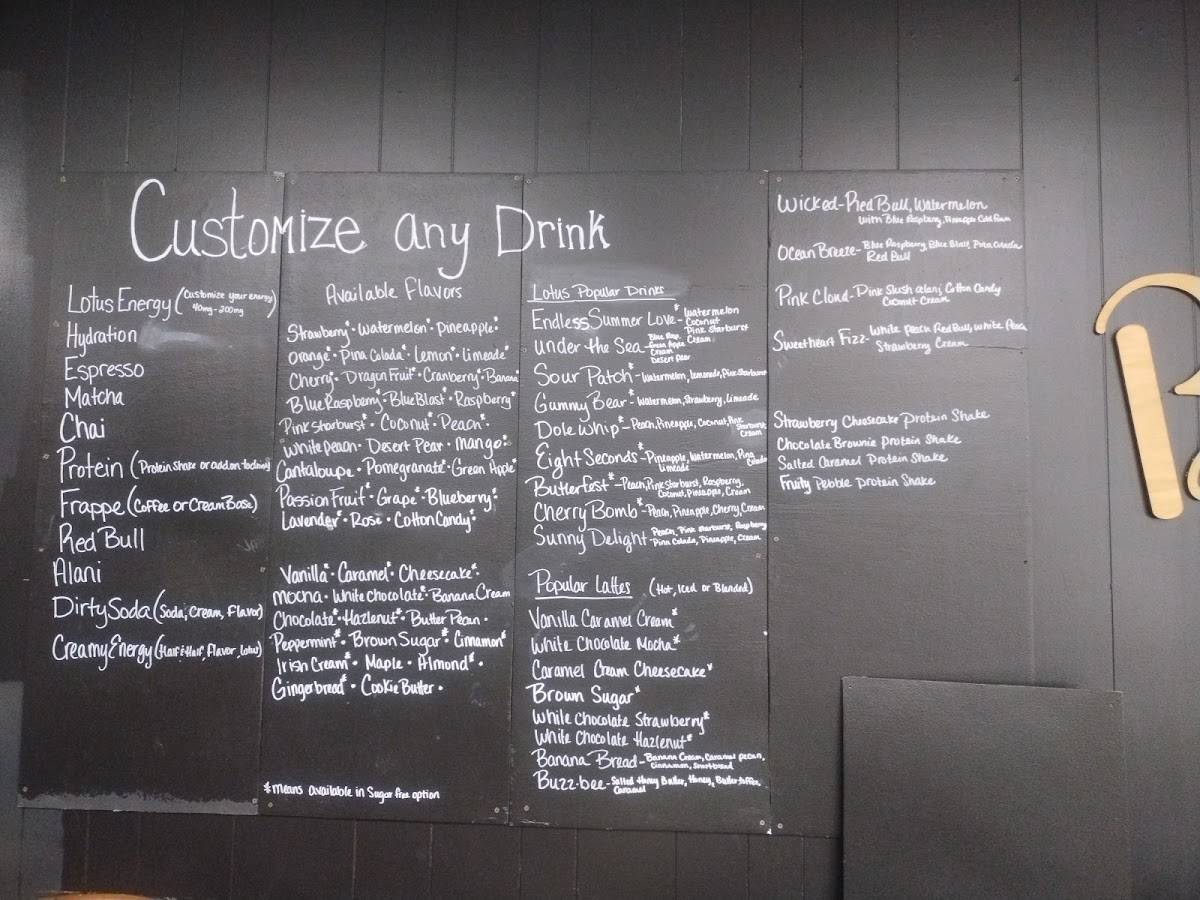 Customize any Drink
Lotus Energy (Customize your energy
40mg-200mg)
Hydration
Espresso
Matcha
Chai
Protein (Protein Shake or add on-
Frappe (Coffee or Cream Base)
Red Bull
Alani
Dirty Soda (Soda, Cream, Flavor)
Creamy Energy (Half & Half, Flavor, Lotus)
Available Flavors
Strawberry* • Watermelon* • Pineapple*
Orange* • Pina Colada* • Lemon* • Limeade*
Cherry* • Dragon Fruit* • Cranberry* • Banana*
Blue Raspberry* • Blue Blast* • Raspberry*
Pink Starburst* • Coconut* • Peach*
White Peach • Desert Pear • Mango*
Cantaloupe • Pomegranate* • Green Apple*
Passion Fruit* • Grape* • Blueberry*
Lavender* • Rose • Cotton Candy*
Vanilla* • Caramel* • Cheesecake*
Mocha • White Chocolate* • Banana Cream
Chocolate* • Hazlenut* • Butter Pecan •
Peppermint* • Brown Sugar* • Cinnamon*
Irish Cream* • Maple • Almond* •
Gingerbread* • Cookie Butter •
*means available in Sugar free option
Lotus Popular Drinks
Endless Summer Love* - Watermelon
Coconut
Pink Starburst
Cream
Under the Sea - Blue Rasp.
Green Apple
Cream
Desert Pear
Sour Patch* - Watermelon, Lemonade, Pink Starburst
Gummy Bear* - Watermelon, Strawberry, Limeade
Dole Whip* - Peach, Pineapple, Coconut, Pink
Starburst
Cream
Eight Seconds* - Pineapple, Watermelon, Pina Colada
Limeade
Butterfest* - Peach, Pink Starburst, Raspberry,
Coconut, Pineapple, Cream
Cherry Bomb* - Peach, Pineapple, Cherry, Cream
Sunny Delight - Peach, Pink Starburst, Raspberry
Pina Colada, Pineapple, Cream
Popular Lattes (Hot, Iced or Blended)
Vanilla Caramel Cream*
White Chocolate Mocha*
Caramel Cream Cheesecake*
Brown Sugar*
White Chocolate Strawberry*
White Chocolate Hazlenut*
Banana Bread - Banana Cream, Caramel pecan,
Cinnamon, Shortbread
Buzz-bee - Salted Honey Butter, Honey, Butter toffee,
Caramel
Wicked - Red Bull, Watermelon
with Blue Raspberry, Pineapple Cold Foam
Ocean Breeze - Blue Raspberry, Blue Blast, Pina Colada
Red Bull
Pink Cloud - Pink Slush alani, Cotton Candy
Coconut Cream
Sweetheart Fizz - White peach Red Bull, White Peach
Strawberry Cream
Strawberry Cheesecake Protein Shake
Chocolate Brownie Protein Shake
Salted Caramel Protein Shake
Fruity Pebble Protein Shake